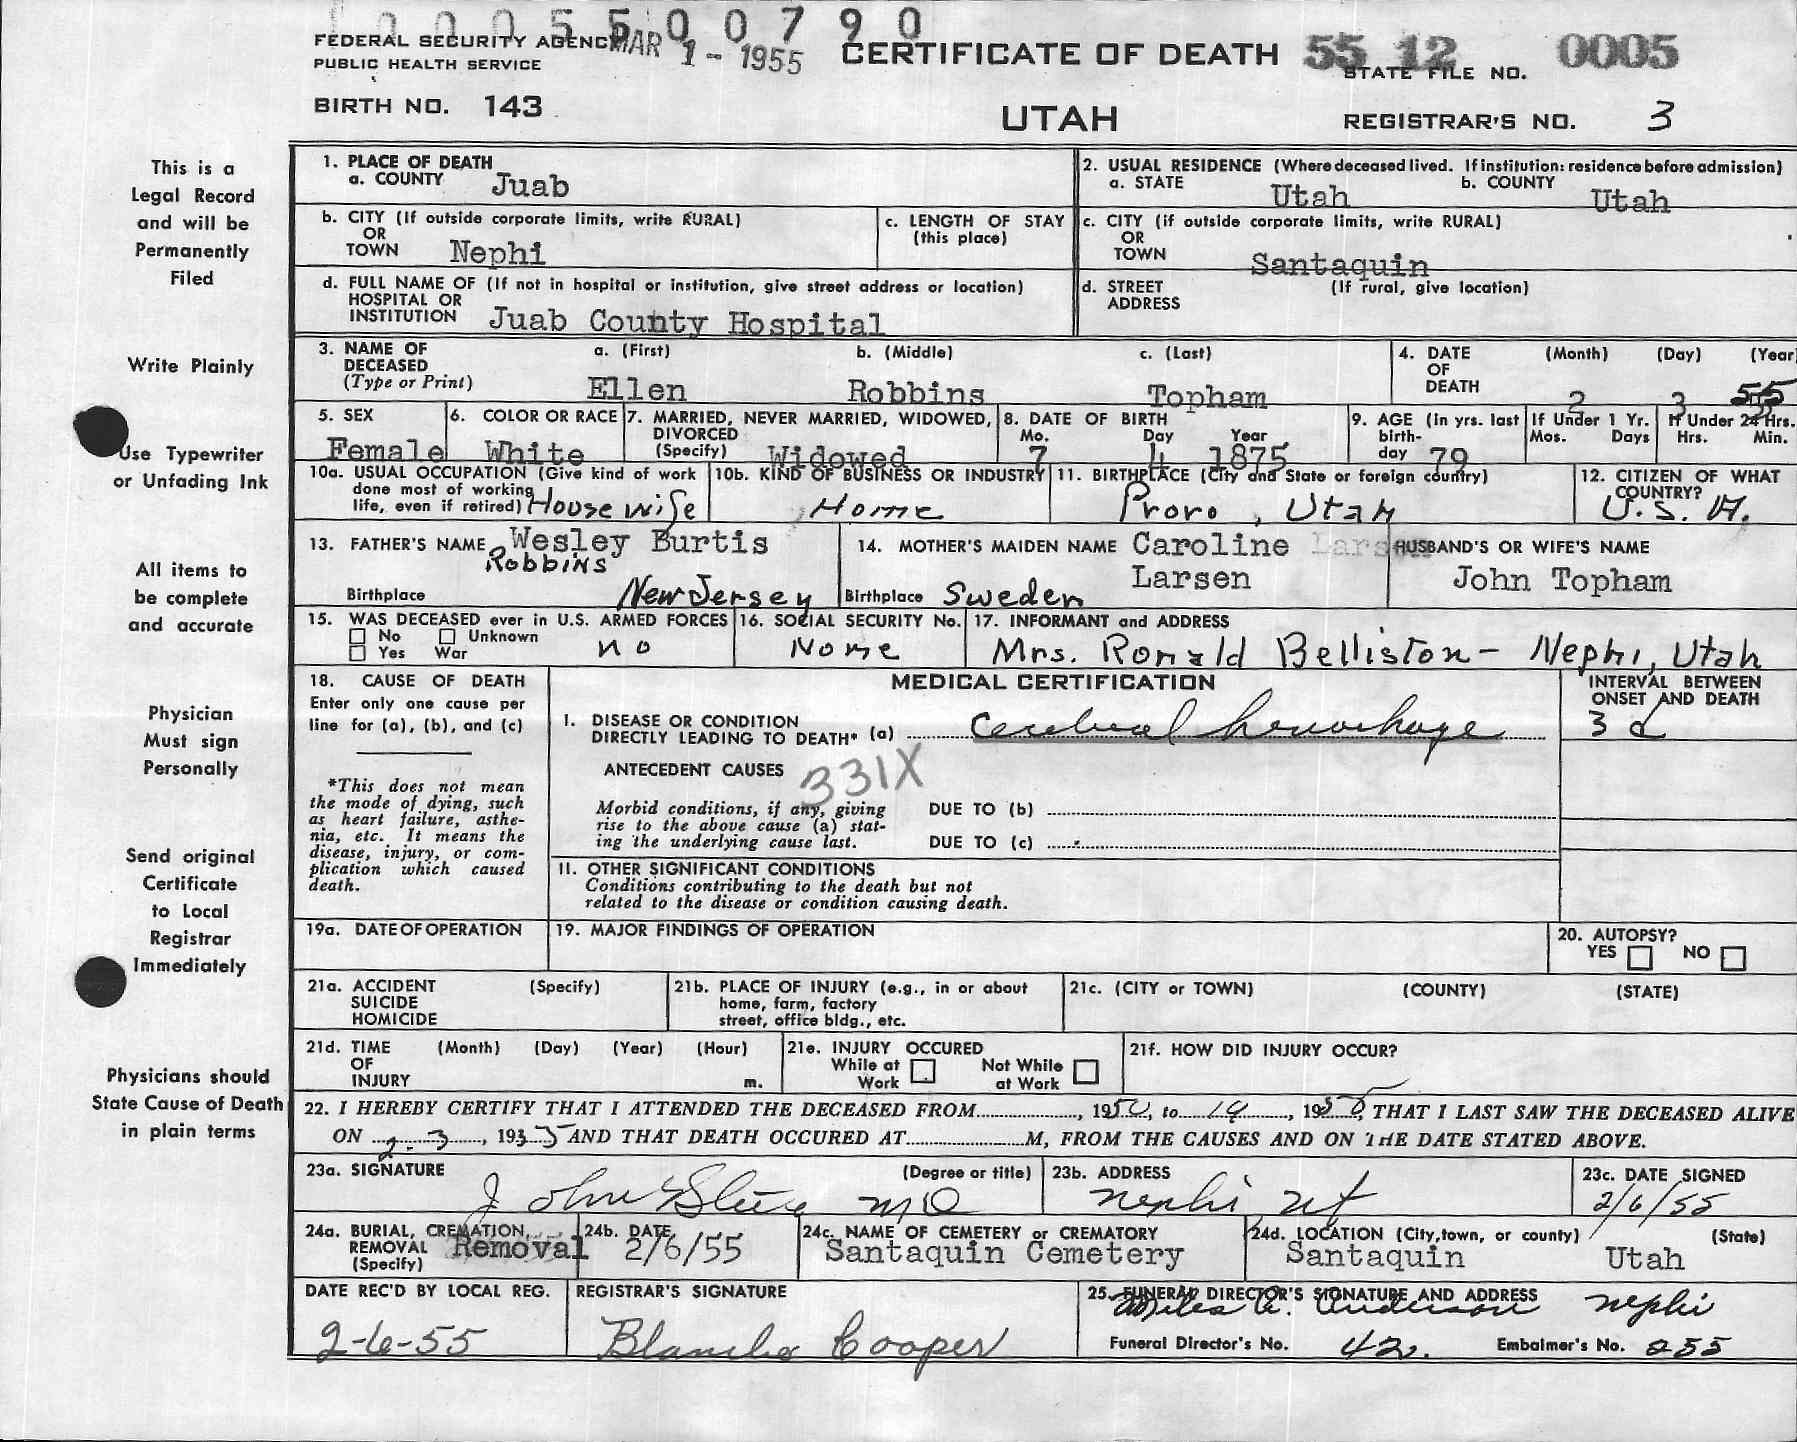 1 0 0 0 5 5 0 0 7 9 0
FEDERAL SECURITY AGENCY MAR 1 - 1955 CERTIFICATE OF DEATH 55 12 0005
PUBLIC HEALTH SERVICE STATE FILE NO.
BIRTH NO. 143 UTAH REGISTRAR'S NO. 3
This is a
Legal Record
and will be
Permanently
Filed
Write Plainly
Use Typewriter
or Unfading Ink
All items to
be complete
and accurate
Physician
Must sign
Personally
Send original
Certificate
to Local
Registrar
Immediately
Physicians should
State Cause of Death
in plain terms
1. PLACE OF DEATH
a. COUNTY Juab
2. USUAL RESIDENCE (Where deceased lived. If institution: residence before admission)
a. STATE Utah b. COUNTY Utah
b. CITY (If outside corporate limits, write RURAL)
OR
TOWN Nephi
c. LENGTH OF STAY
(this place)
c. CITY (if outside corporate limits, write RURAL)
OR
TOWN Santaquin
d. FULL NAME OF (If not in hospital or institution, give street address or location)
HOSPITAL OR
INSTITUTION Juab County Hospital
d. STREET (If rural, give location)
ADDRESS
3. NAME OF a. (First) b. (Middle) c. (Last)
DECEASED
(Type or Print) Ellen Robbins Topham
4. DATE (Month) (Day) (Year
OF
DEATH 2 3 55
5. SEX
Female
6. COLOR OR RACE
White
7. MARRIED, NEVER MARRIED, WIDOWED,
DIVORCED
(Specify) Widowed
8. DATE OF BIRTH
Mo. Day Year
7 4 1875
9. AGE (in yrs. last
birth-
day 79
If Under 1 Yr.
Mos. Days
If Under 24 Hrs.
Hrs. Min.
10a. USUAL OCCUPATION (Give kind of work
done most of working
life, even if retired) Housewife
10b. KIND OF BUSINESS OR INDUSTRY
Home
11. BIRTHPLACE (City and State or foreign country)
Provo, Utah
12. CITIZEN OF WHAT
COUNTRY?
U.S.A.
13. FATHER'S NAME Wesley Burtis
Robbins
Birthplace New Jersey
14. MOTHER'S MAIDEN NAME Caroline
Larsen
Birthplace Sweden
HUSBAND'S OR WIFE'S NAME
John Topham
15. WAS DECEASED ever in U.S. ARMED FORCES
No Unknown
Yes War no
16. SOCIAL SECURITY No.
None
17. INFORMANT and ADDRESS
Mrs. Ronald Belliston - Nephi, Utah
18. CAUSE OF DEATH
Enter only one cause per
line for (a), (b), and (c)
*This does not mean
the mode of dying, such
as heart failure, asthe-
nia, etc. It means the
disease, injury, or com-
plication which caused
death.
MEDICAL CERTIFICATION
INTERVAL BETWEEN
ONSET AND DEATH
I. DISEASE OR CONDITION
DIRECTLY LEADING TO DEATH* (a) Cerebral hemorhage 3 d
ANTECEDENT CAUSES 331X
Morbid conditions, if any, giving DUE TO (b)
rise to the above cause (a) stat-
ing the underlying cause last. DUE TO (c)
11. OTHER SIGNIFICANT CONDITIONS
Conditions contributing to the death but not
related to the disease or condition causing death.
19a. DATE OF OPERATION
19. MAJOR FINDINGS OF OPERATION
20. AUTOPSY?
YES NO
21a. ACCIDENT (Specify)
SUICIDE
HOMICIDE
21b. PLACE OF INJURY (e.g., in or about
home, farm, factory
street, office bldg., etc.
21c. (CITY or TOWN) (COUNTY) (STATE)
21d. TIME (Month) (Day) (Year) (Hour)
OF
INJURY m.
21e. INJURY OCCURED
While at Not While
Work at Work
21f. HOW DID INJURY OCCUR?
22. I HEREBY CERTIFY THAT I ATTENDED THE DECEASED FROM, 1950, to, 195, THAT I LAST SAW THE DECEASED ALIVE
ON 2-3, 1955 AND THAT DEATH OCCURED AT M, FROM THE CAUSES AND ON THE DATE STATED ABOVE.
23a. SIGNATURE (Degree or title)
J John MD
23b. ADDRESS
Nephi Ut
23c. DATE SIGNED
2/6/55
24a. BURIAL, CREMATION,
REMOVAL Removal
(Specify)
24b. DATE
2/6/55
24c. NAME OF CEMETERY or CREMATORY
Santaquin Cemetery
24d. LOCATION (City, town, or county) (State)
Santaquin Utah
DATE REC'D BY LOCAL REG.
2-6-55
REGISTRAR'S SIGNATURE
Blanche Cooper
25. FUNERAL DIRECTOR'S SIGNATURE AND ADDRESS
Miles A. Anderson Nephi
Funeral Director's No. 42. Embalmer's No. 255